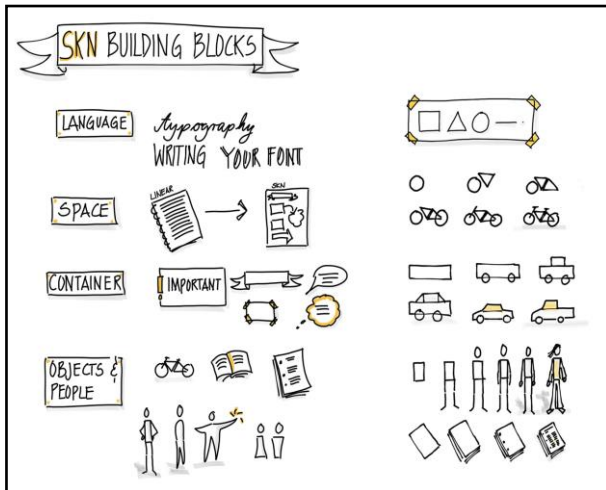 SKN BUILDING BLOCKS
LANGUAGE
typography
WRITING YOUR FONT
SPACE
LINEAR
SKN
CONTAINER
! IMPORTANT
OBJECTS &
PEOPLE